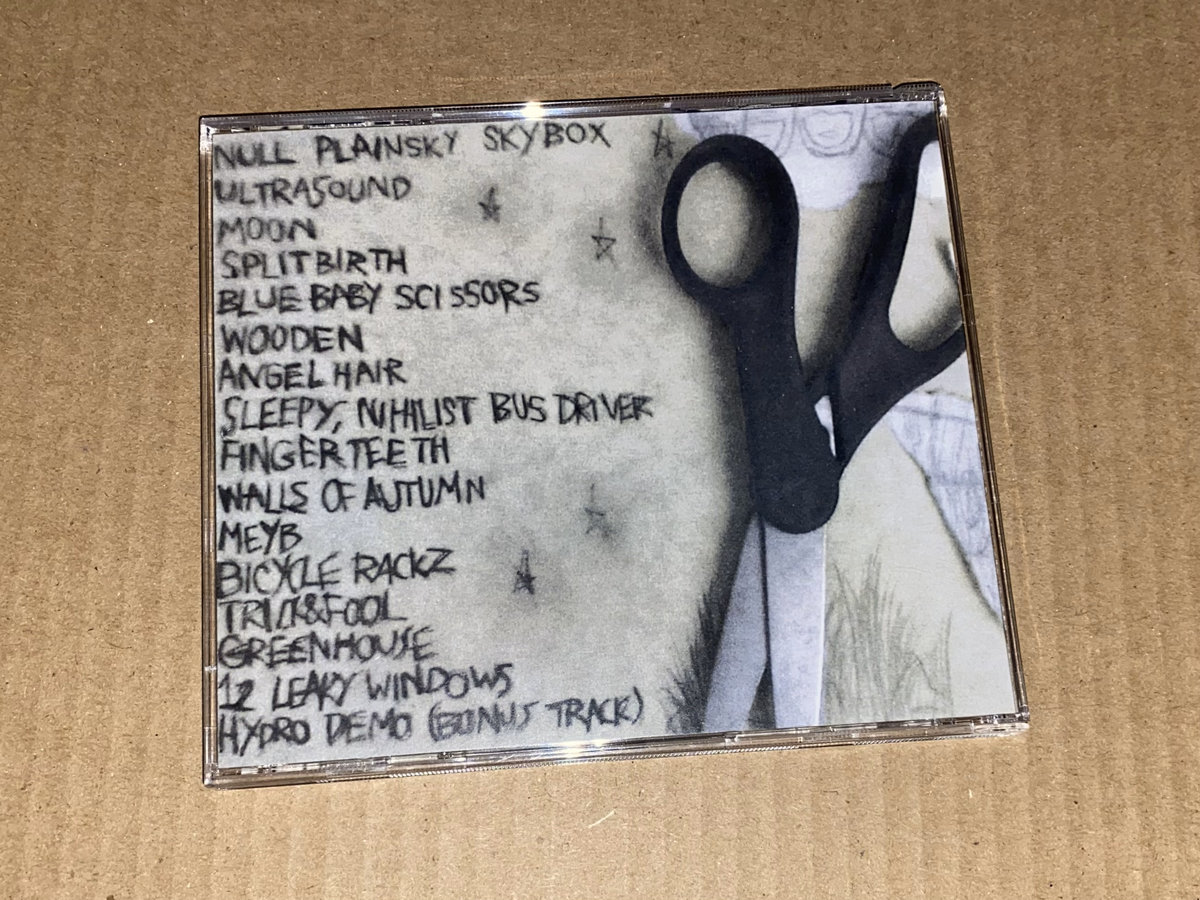 NULL PLAINSKY SKYBOX
ULTRASOUND
MOON
SPLIT BIRTH
BLUE BABY SCISSORS
WOODEN
ANGEL HAIR
SLEEPY, NIHILIST BUS DRIVER
FINGERTEETH
WALLS OF AUTUMN
MEYB
BICYCLE RACKZ
TRICK&FOOL
GREENHOUSE
12 LEAKY WINDOWS
HYDRO DEMO (BONUS TRACK)